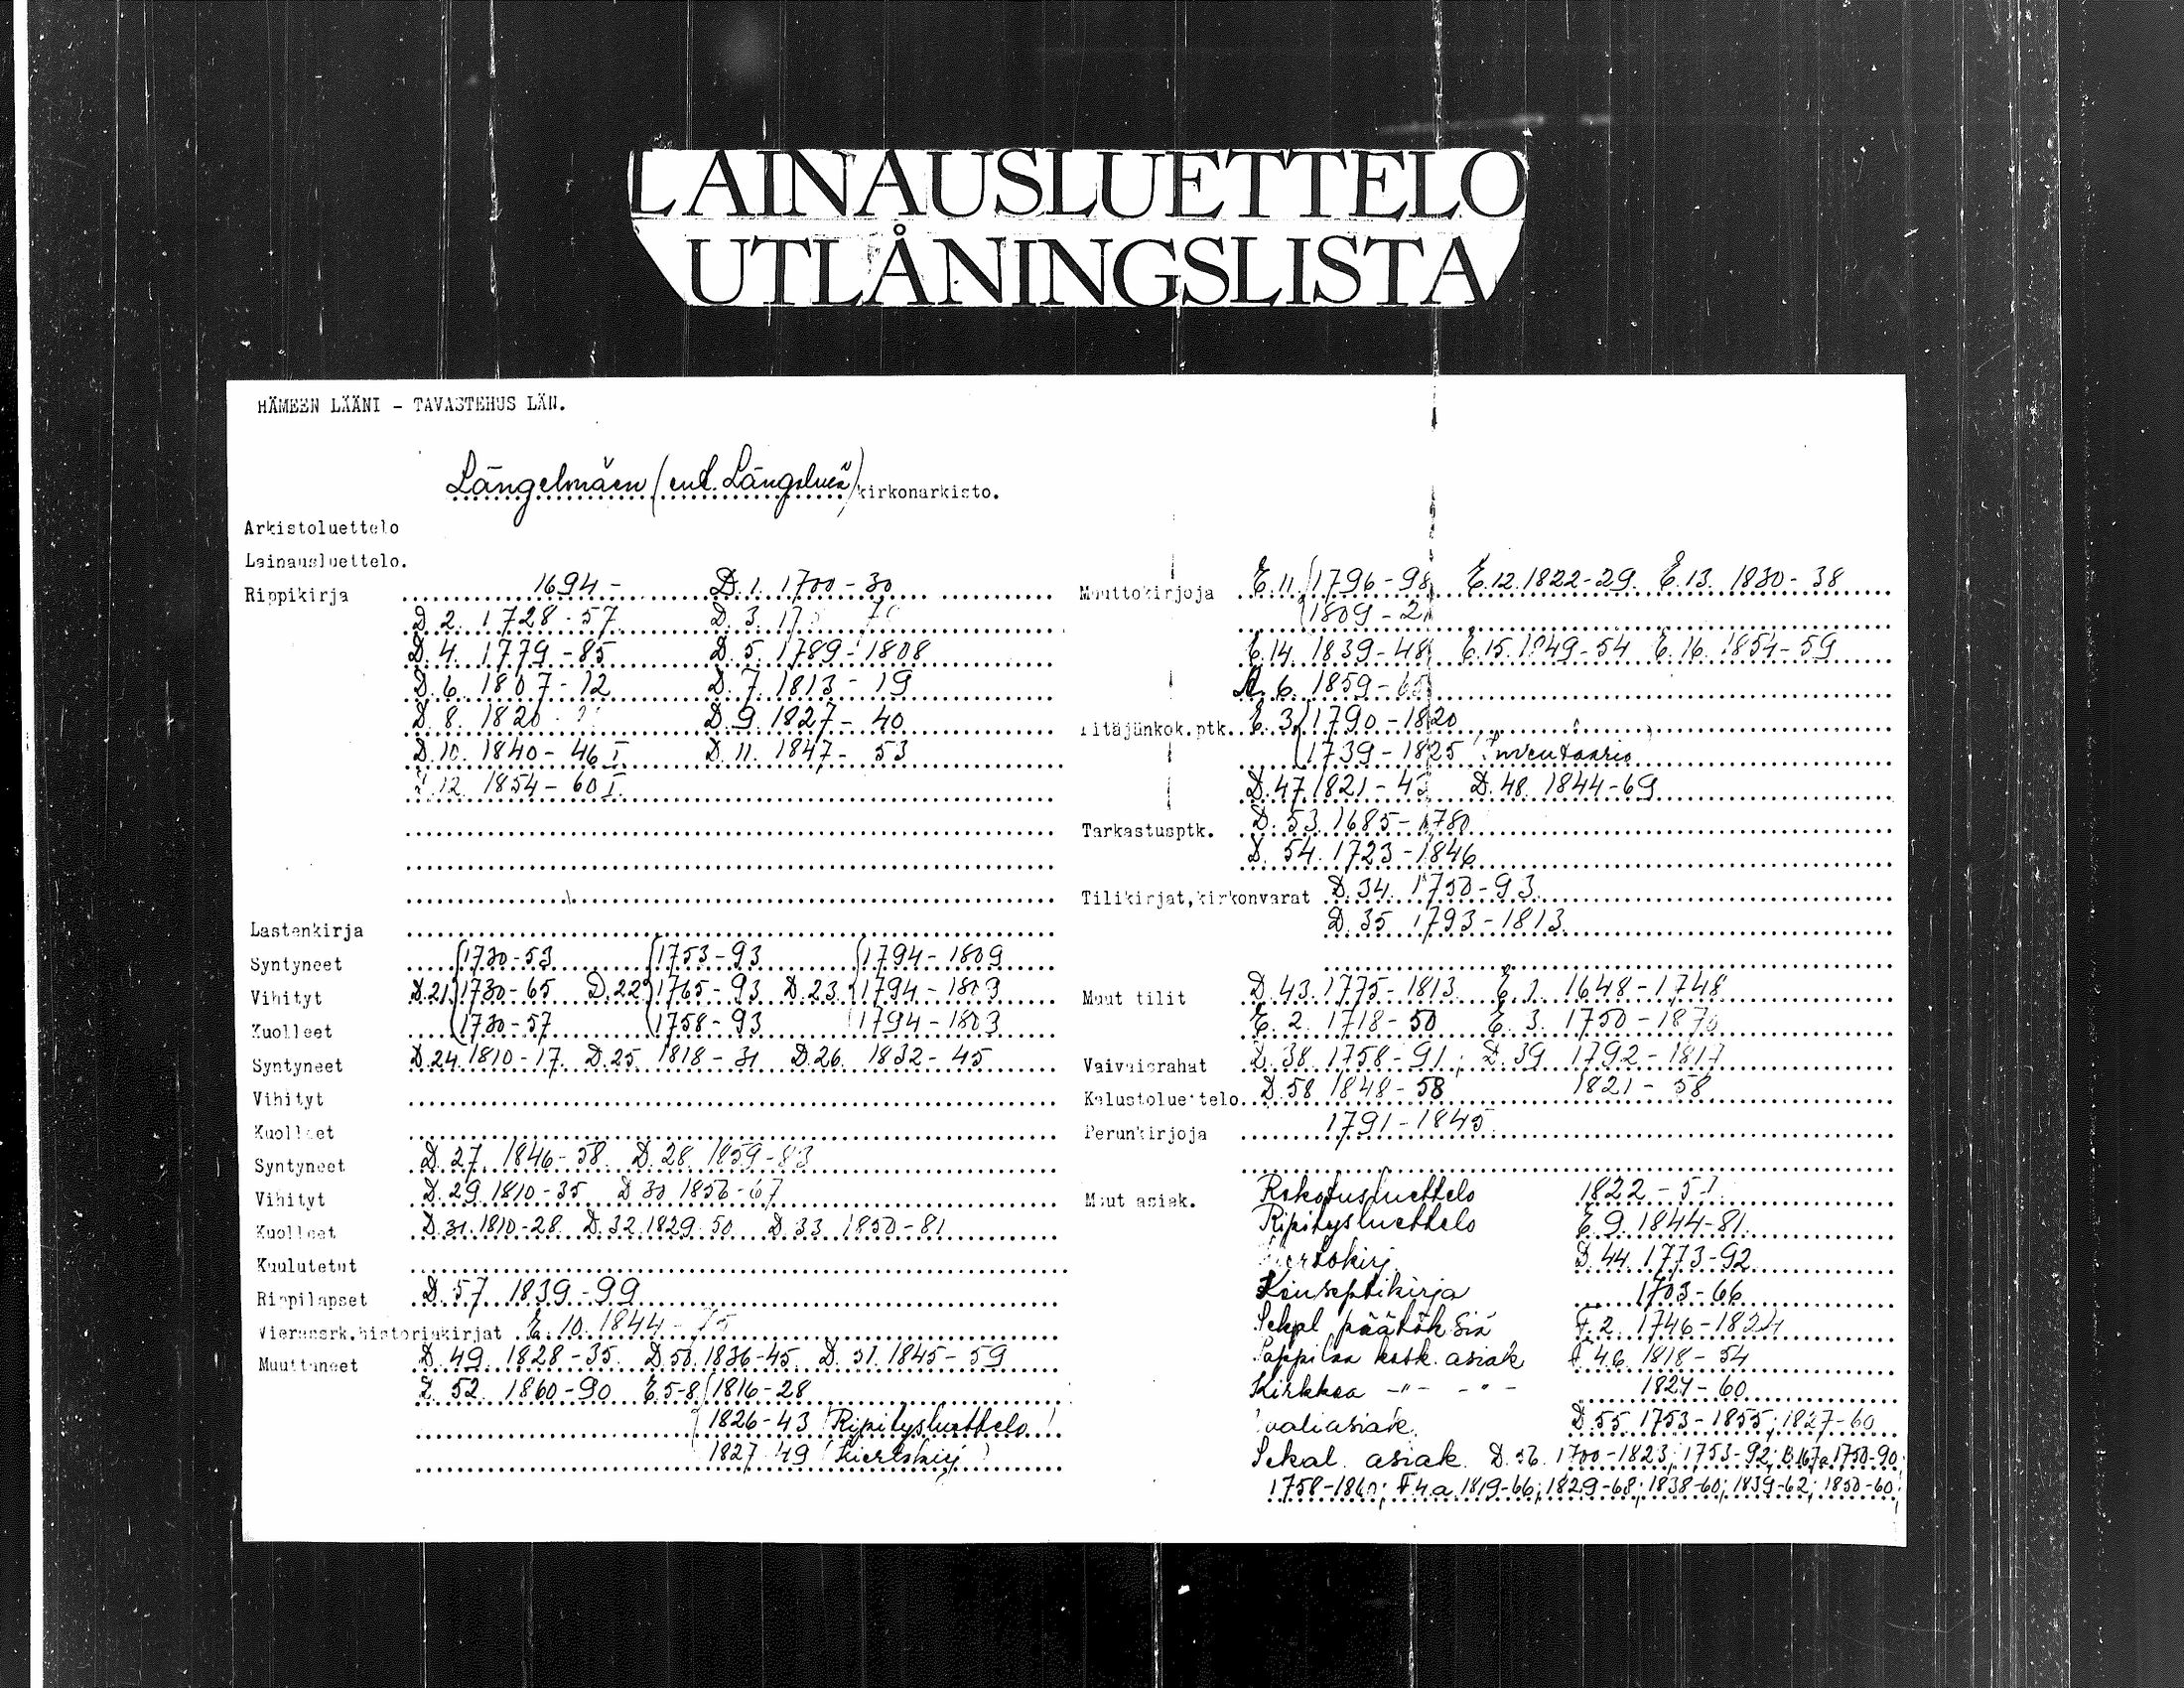 LAINAUSLUETTELO
UTLÅNINGSLISTA
HÄMEEN LÄÄNI - TAVASTEHUS LÄN.
Längelmäen (ent. Längelmä) kirkonarkisto.
Arkistoluettelo
Lainausluettelo.
Rippikirja 1694- D.1. 1700-30
D.2. 1728-57 D.3.
D.4. 1779-85 D.5. 1789-1808
D.6. 1807-12 D.7. 1813-19
D.8. 1820- D.9. 1827-40
D.10. 1840-46 I D.11. 1847-53
12. 1854-60 I.
Lastenkirja
Syntyneet 1730-53 1753-93 1794-1809
Vihityt D.21. 1730-65 D.22. 1765-93 D.23. 1794-1809
Kuolleet 1730-57 1758-93 1794-1803
Syntyneet D.24. 1810-17. D.25. 1818-31 D.26. 1832-45
Vihityt
Kuolleet
Syntyneet D.27. 1846-58. D.28. 1859-83
Vihityt D.29. 1810-35 D 30 1856-67
Kuolleet D.31. 1810-28. D.32. 1829-50 D.33. 1850-81
Kuulutetut
Rippilapset D.57. 1839-99
Vierassrk.historiakirjat E.10. 1844-75
Muuttaneet D.49. 1828-35. D.50. 1836-45. D.51. 1845-59
D.52. 1860-90 E.5-8 1816-28
1826-43 (Ripitysluettelo)
1827-49 (Kiertokirj.)
Muuttokirjoja E.11. 1796-98 E.12. 1822-29. E.13. 1830-38
1809-21
E.14. 1839-48 E.15. 1849-54 E.16. 1854-59
A.6. 1859-
Pitäjänkok.ptk. E.3. 1790-1820
1739-1825 inventaario
D.47. 1821-43 D.48. 1844-69
Tarkastusptk. D.53. 1685-1780
D.54. 1723-1846
Tilikirjat,kirkonvarat D.34. 1750-93.
D.35. 1793-1813
Muut tilit D.43. 1775-1813 E.1. 1648-1748
E.2. 1718-50 E.3. 1750-1870
Vaivaisrahat D.38. 1758-91; D.39. 1792-1817
Kalustoluettelo. D.58 1848-58 1821-58
Perunkirjoja 1791-1845
Muut asiak. Rokotusluettelo 1822-
Ripitysluettelo E.9. 1844-81.
Kiertokirj. D.44. 1773-92
Konseptikirja 1703-66
Sekal. päätöksiä F.2. 1746-1824
Pappilaa kosk. asiak 46. 1818-54
Kirkkoa -"- -"- 1824-60
Vaaliasiak. D.55. 1753-1855; 1827-60
Sekal. asiak. D.56. 1700-1823; 1753-92; B.167a. 1750-90;
1758-1860; F4.a. 1819-66; 1829-68; 1838-60; 1839-62; 1850-60;